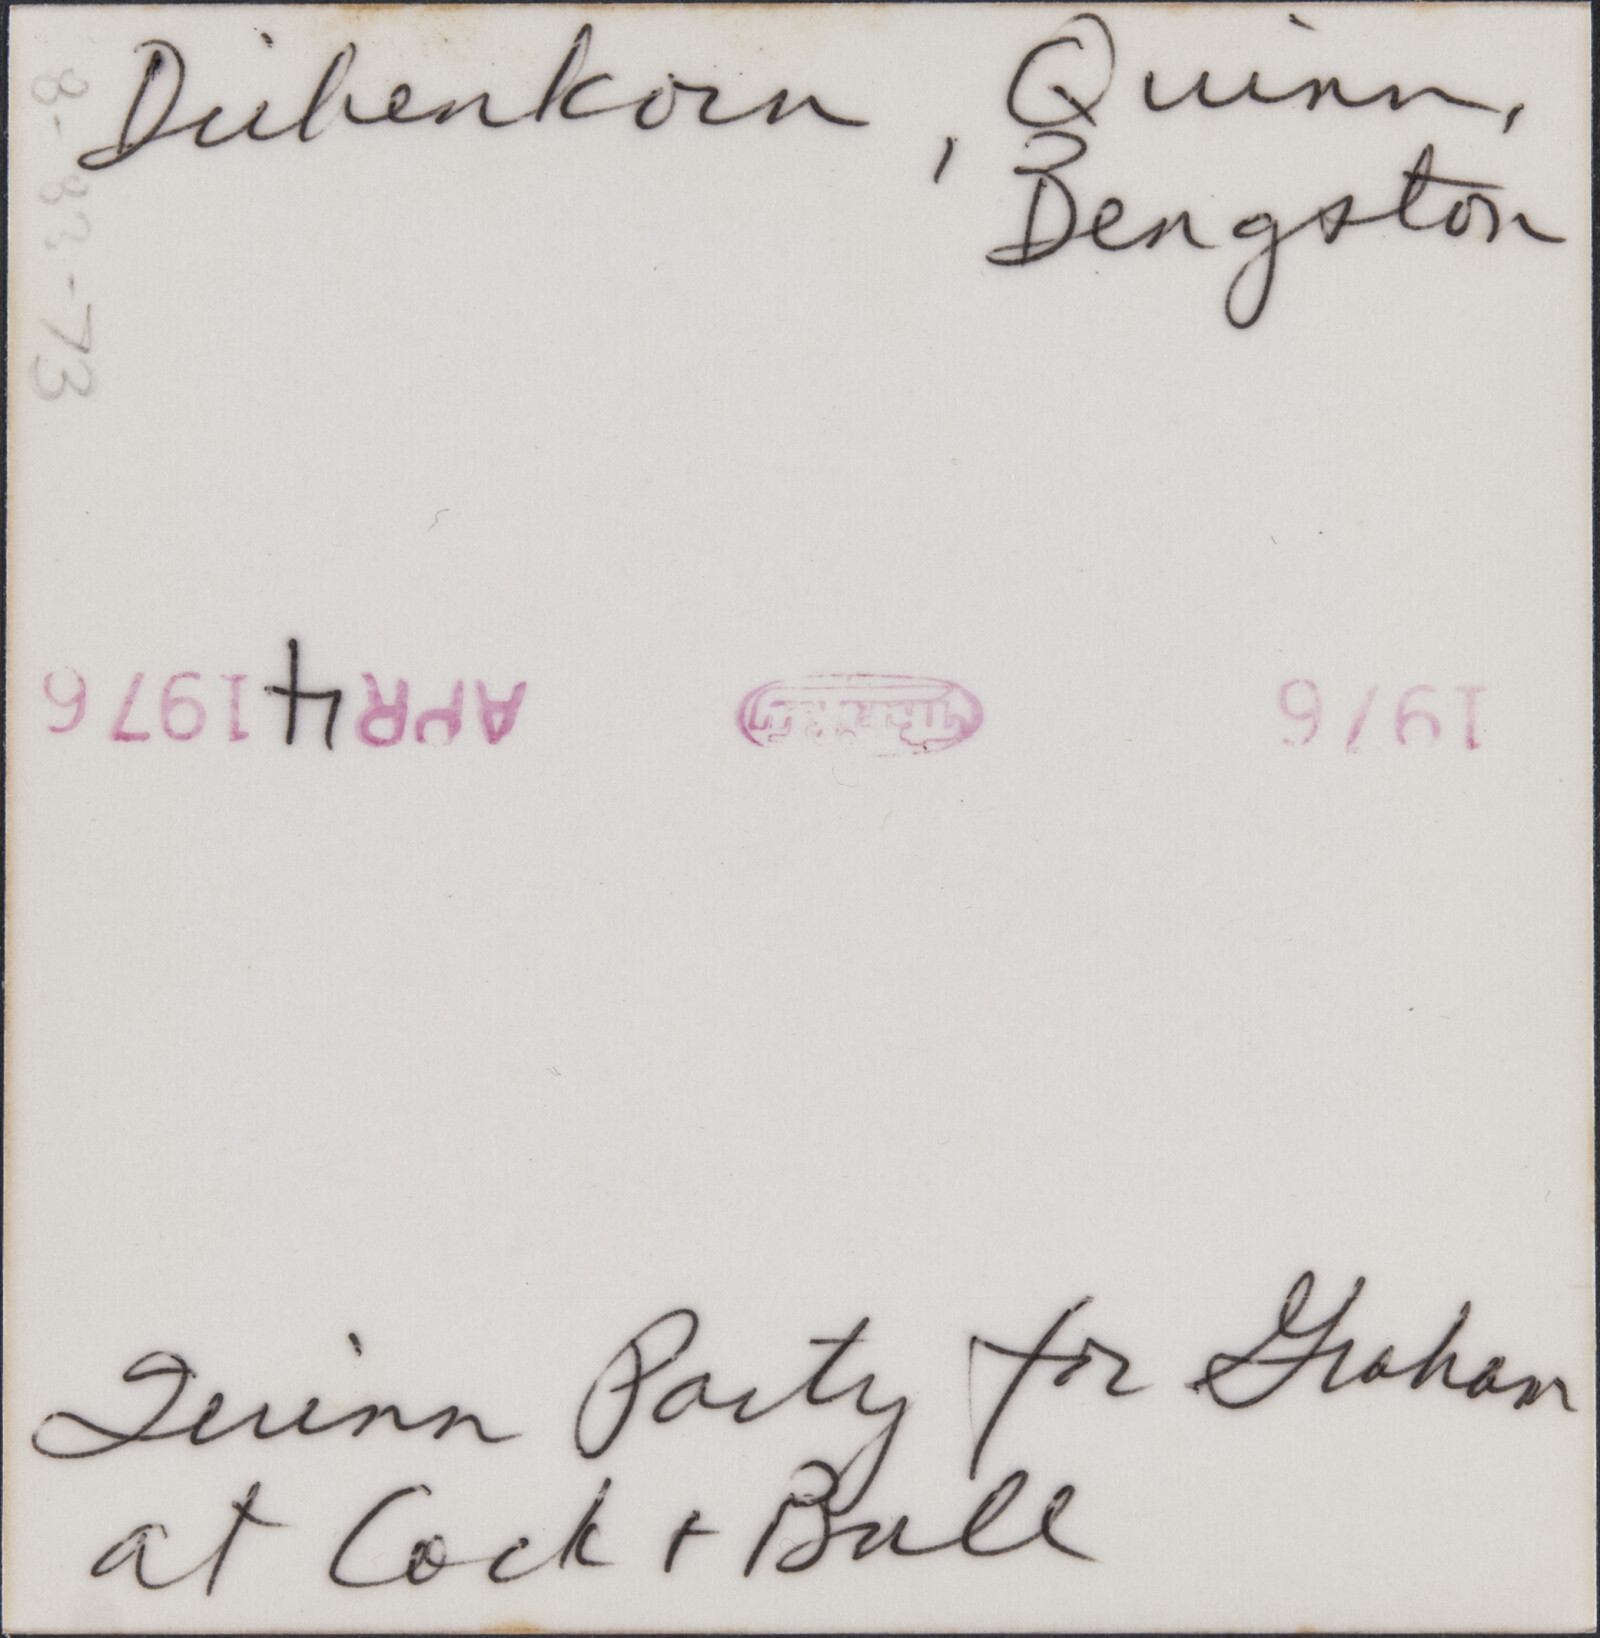 Diebenkorn, Quinn,
Bengston
8-83-73
APR 4 1976
1976
Quinn Party for Graham
at Cock + Bull